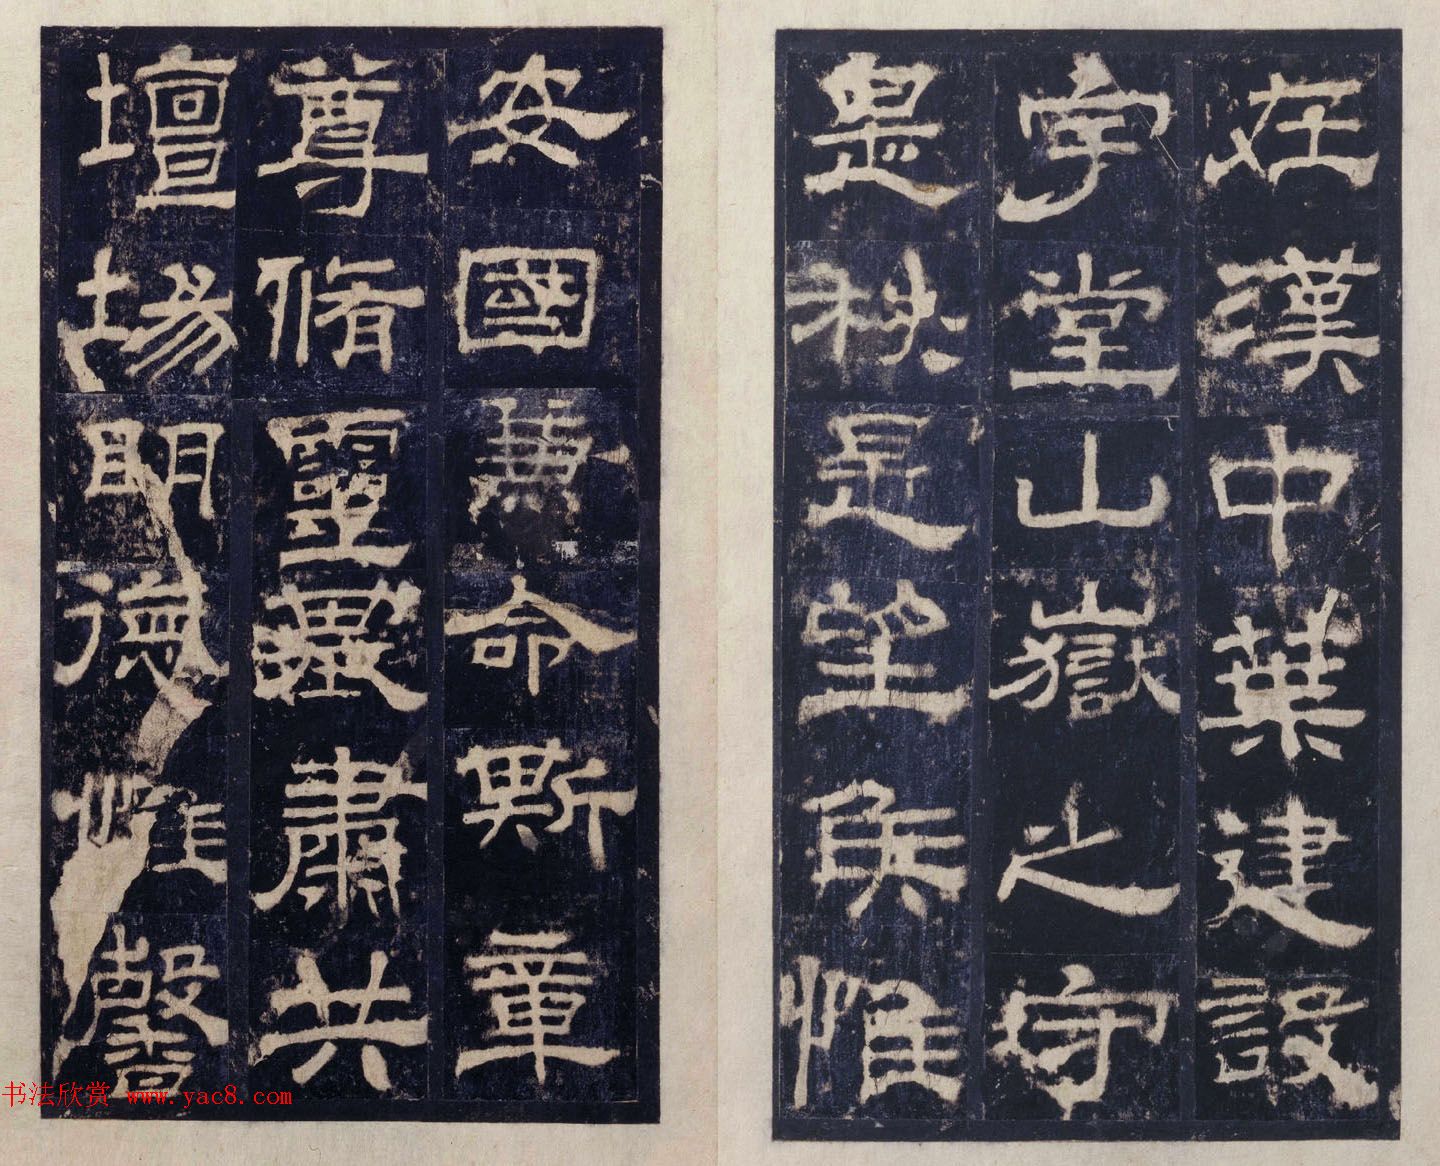 在漢中葉建設
宇堂山嶽之守
是秩是望侯惟
安國兼命斯章
尊脩靈基肅共
壇場明德惟馨
书法欣赏 www.yac8.com